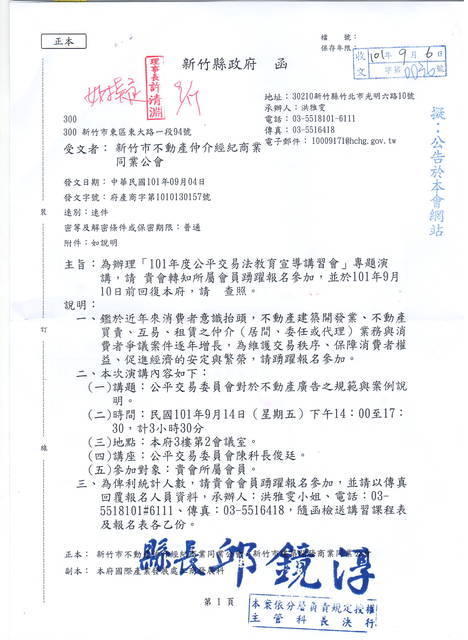 正本
檔　號：
保存年限：
新竹縣政府　函
收文
101年9月6日
字第
理事長許清淵
地址：30210新竹縣竹北市光明六路10號
承辦人：洪雅雯
電話：03-5518101-6111
傳真：03-5516418
電子郵件：10009171@hchg.gov.tw
擬：公告於本會網站
300
300 新竹市東區東大路一段94號
受文者：新竹市不動產仲介經紀商業
同業公會
發文日期：中華民國101年09月04日
發文字號：府產商字第1010130157號
速別：速件
密等及解密條件或保密期限：普通
附件：如說明
主旨：為辦理「101年度公平交易法教育宣導講習會」專題演
講，請 貴會轉知所屬會員踴躍報名參加，並於101年9月
10日前回復本府，請　查照。
說明：
一、鑑於近年來消費者意識抬頭，不動產建築開發業、不動產
買賣、互易、租賃之仲介（居間、委任或代理）業務與消
費者爭議案件逐年增長，為維護交易秩序、保障消費者權
益、促進經濟的安定與繁榮，請踴躍報名參加。
二、本次演講內容如下：
(一)講題：公平交易委員會對於不動產廣告之規範與案例說
明。
(二)時間：民國101年9月14日（星期五）下午14：00至17：
30，計3小時30分
(三)地點：本府3樓第2會議室。
(四)講座：公平交易委員會陳科長俊廷。
(五)參加對象：貴會所屬會員。
三、為俾利統計人數，請貴會會員踴躍報名參加，並請以傳真
回覆報名人員資料，承辦人：洪雅雯小姐、電話：03-
5518101#6111、傳真：03-5516418，隨函檢送講習課程表
及報名表各乙份。
裝
訂
線
正本：新竹市不動產仲介經紀商業同業公會、新竹市
商業同業公會
副本：本府國際產業發展處
縣長邱鏡淳
第 1 頁
本案依分層負責規定授權
主管科長決行